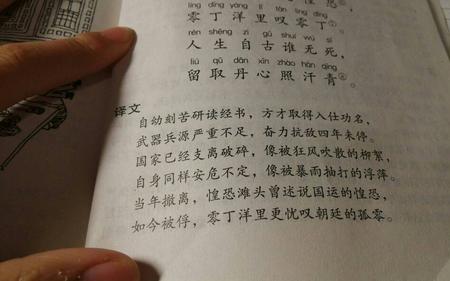 惶恐⑤,
líng dīng yáng lǐ tàn líng dīng
零丁洋里叹零丁⑦。
rén shēng zì gǔ shuí wú sǐ
人生自古谁无死,
liú qǔ dān xīn zhào hàn qīng
留取丹心照汗青⑧。
译文
自幼刻苦研读经书,方才取得入仕功名,
武器兵源严重不足,奋力抗敌四年未停。
国家已经支离破碎,像被狂风吹散的柳絮,
自身同样安危不定,像被暴雨抽打的浮萍。
当年撤离,惶恐滩头曾述说国运的惶恐,
如今被俘,零丁洋里更忧叹朝廷的孤零。